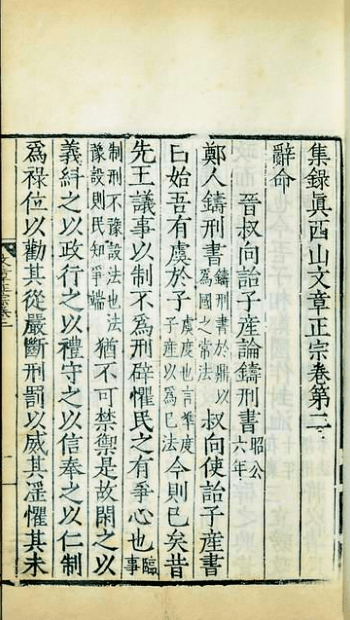 集錄眞西山文章正宗卷第二
辭命
晉叔向詒子產論鑄刑書昭公六年
鄭人鑄刑書鑄刑書於鼎以爲國之常法叔向使詒子產書
曰始吾有虞於子虞度也言準度子產以爲巳法今則巳矣昔
先王議事以制不爲刑辟懼民之有爭心也臨事
制刑不豫設法也法豫設則民知爭端猶不可禁禦是故閑之以
義糾之以政行之以禮守之以信奉之以仁制
爲祿位以勸其從嚴斷刑罰以威其淫懼其未